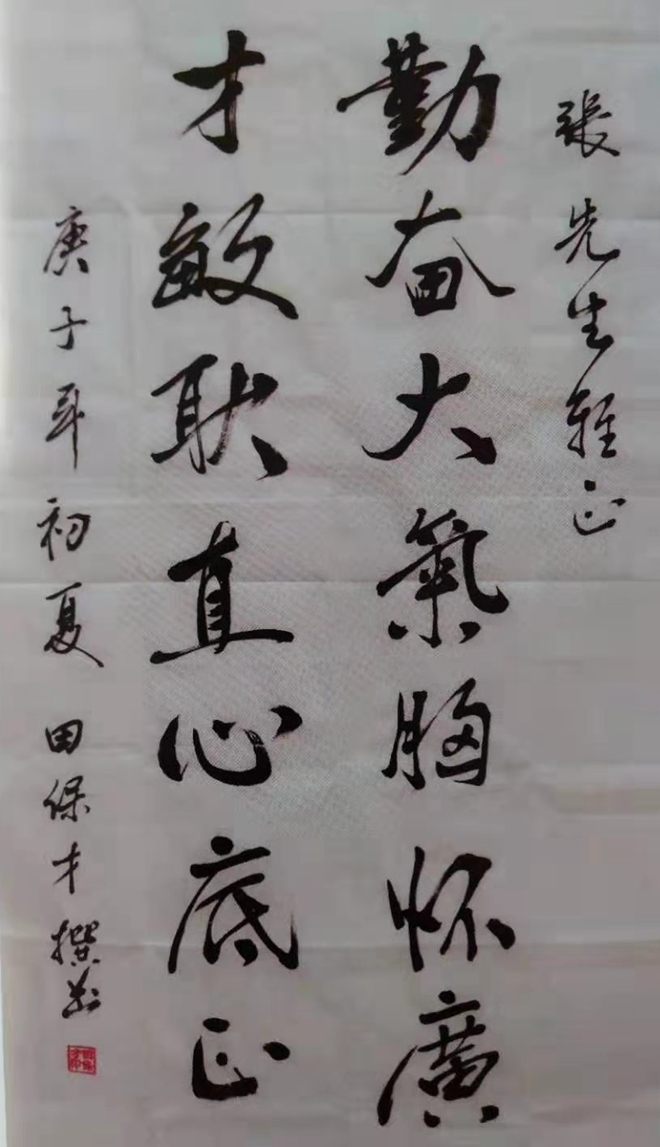 張先生雅正
勤奋大氣胸怀廣
才敏耿直心底正
庚子年初夏 田保才撰書